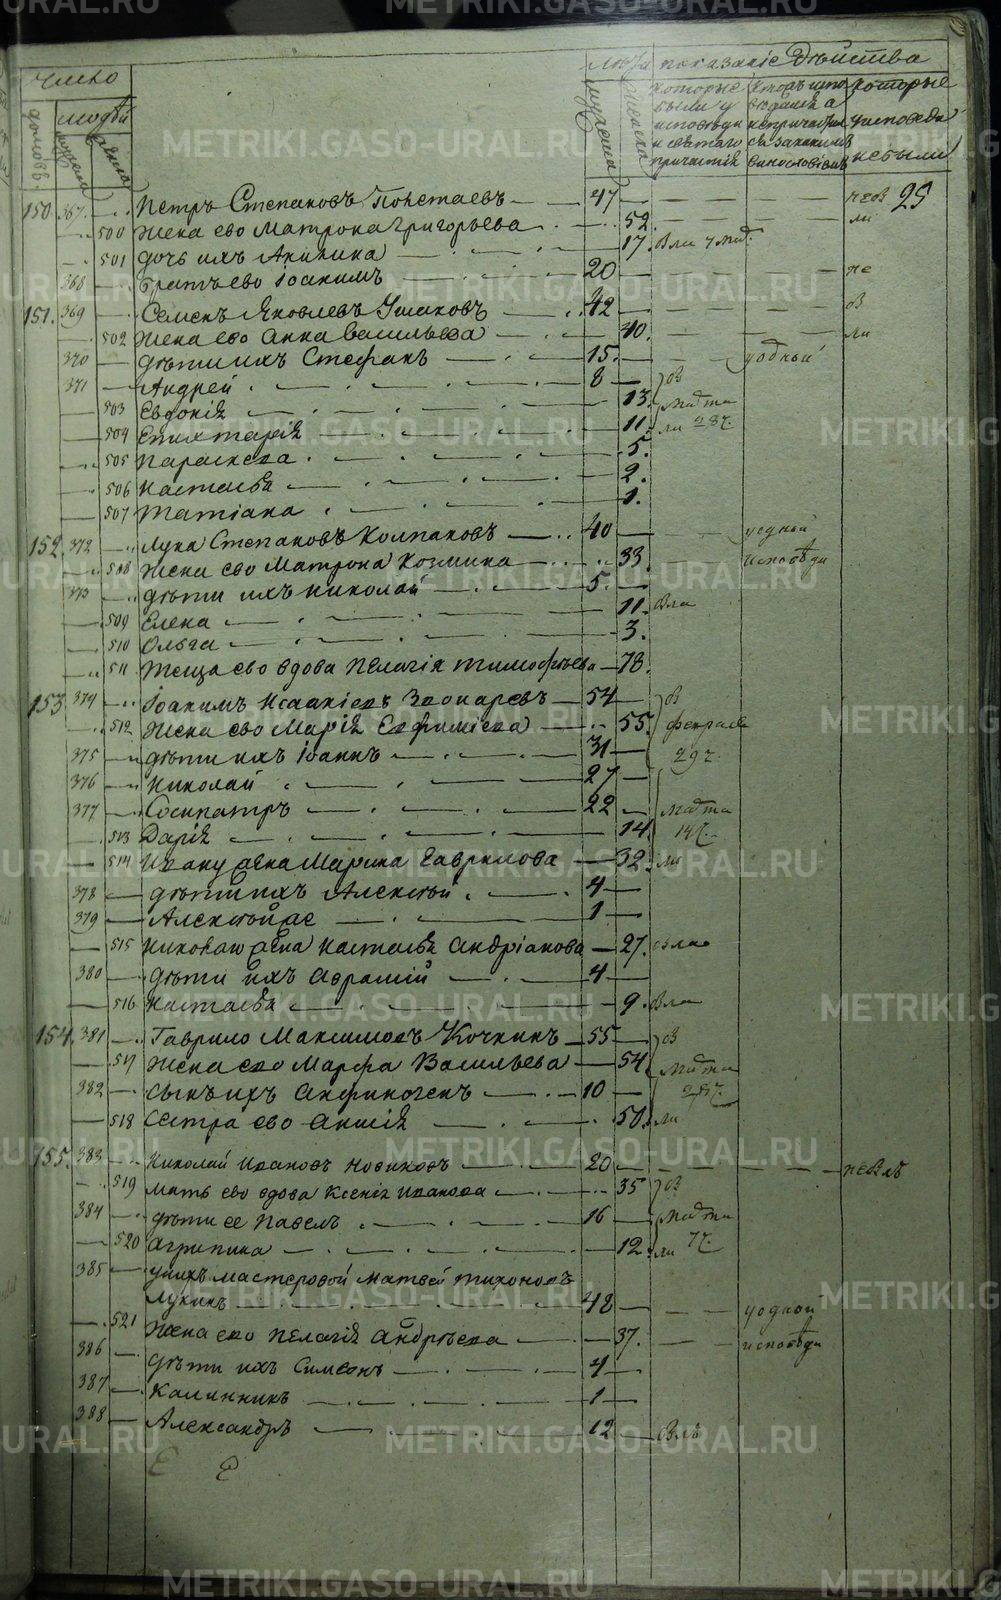 число
людей
домовъ
лѣта показаніе дѣйства
которые были у исповѣди и святаго причастія
которые
у исповѣди
не были
25
150. 367. Петръ Степановъ 47
500 Жена ево Матрона Григорьева 52
501 дочь ихъ Акилина 17. 
368 братъ ево Іоакимъ 20 не
151. 369 Семенъ Яковлевъ Ушаковъ 42
502 Жена ево Анна Васильева 40. ли
370 дѣти ихъ Стефанъ 15.
371 Андрей 8
503 Евдокія 13. марта
504 Епихтарія 11. ли 28.
505 Параскева 5.
506 Настасья 2.
507 Татіана 1.
152. 372 Лука Степановъ Колпаковъ 40
508 Жена ево Матрона Козмина 33. исповѣди
373 дѣти ихъ Николай 5.
509 Елена 11.
510 Ольга 3.
511 Теща ево вдова Пелагія Тимофѣева 78.
153. 374 Іоакимъ Исаакіевъ 54
512 Жена ево Марія Евфиміева 55. февраля
375 дѣти ихъ Іоаннъ 31 29
376 Николай 27
377 Сосипатръ 22 марта
513 Дарія 14. 14
514 Ивану жена Марина Гаврилова 32. ли
378 дѣти ихъ Алексѣй 4
379 Алексѣй же 1
515 Николаю жена Настасья Андріанова 27.
380 дѣти ихъ Аврамій 4
516 Настасья 9.
154. 381 Гаврило Максимовъ Кочкинъ 55
517 Жена ево Марфа Васильева 54. марта
382 сынъ ихъ Анфиногенъ 10 28
518 Сестра ево Анисія 50. ли
155. 383 Николай Ивановъ Новиковъ 20
519 мать ево вдова Ксенія Иванова 35
384 дѣти ее Павелъ 16 марта
520 Агрипина 12. ли 7
385 у нихъ мастеровой Матвей Тихоновъ
Лукинъ 48 у одной
521 Жена ево Пелагія Андрѣева 37. исповѣди
386 дѣти ихъ Симеонъ 4
387 Калинникъ 1
388 Александръ 12
METRIKI.GASO-URAL.RU